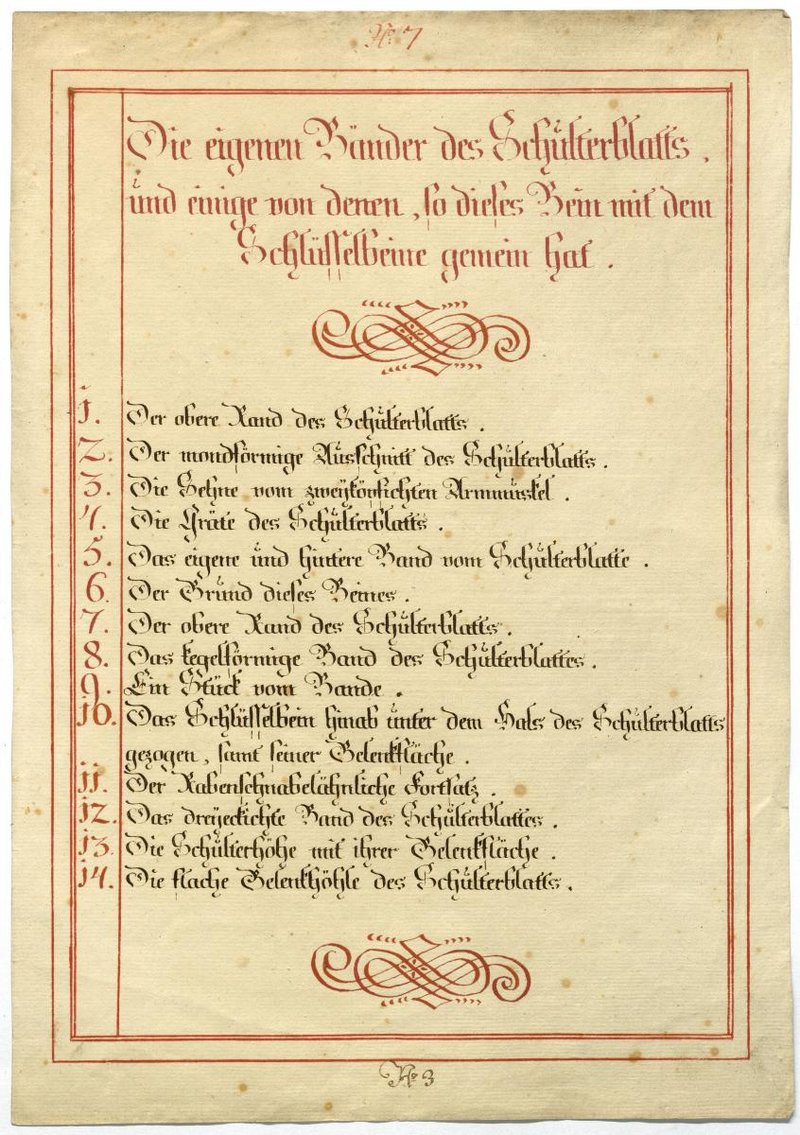 No. 7
Die eigenen Bänder des Schulterblatts,
und einige von denen, so dieses Bein mit dem
Schlüsselbeine gemein hat.
1. Der obere Rand des Schulterblatts.
2. Der mondförmige Ausschnitt des Schulterblatts.
3. Die Sehne vom zweyköpfichten Armmuskel.
4. Die Gräte des Schulterblatts.
5. Das eigene und hintere Band vom Schulterblatte.
6. Der Grund dieses Beines.
7. Der obere Rand des Schulterblatts.
8. Das kegelförmige Band des Schulterblattes.
9. Ein Stück vom Bande.
10. Das Schlüsselbein hinab unter dem Hals des Schulterblatts
gezogen, samt seiner Gelenkfläche.
11. Der Rabenschnabelähnliche Fortsatz.
12. Das dreyeckichte Band des Schulterblattes.
13. Die Schulterhöhe mit ihrer Gelenkfläche.
14. Die flache Gelenkhöhle des Schulterblatts.
No. 3